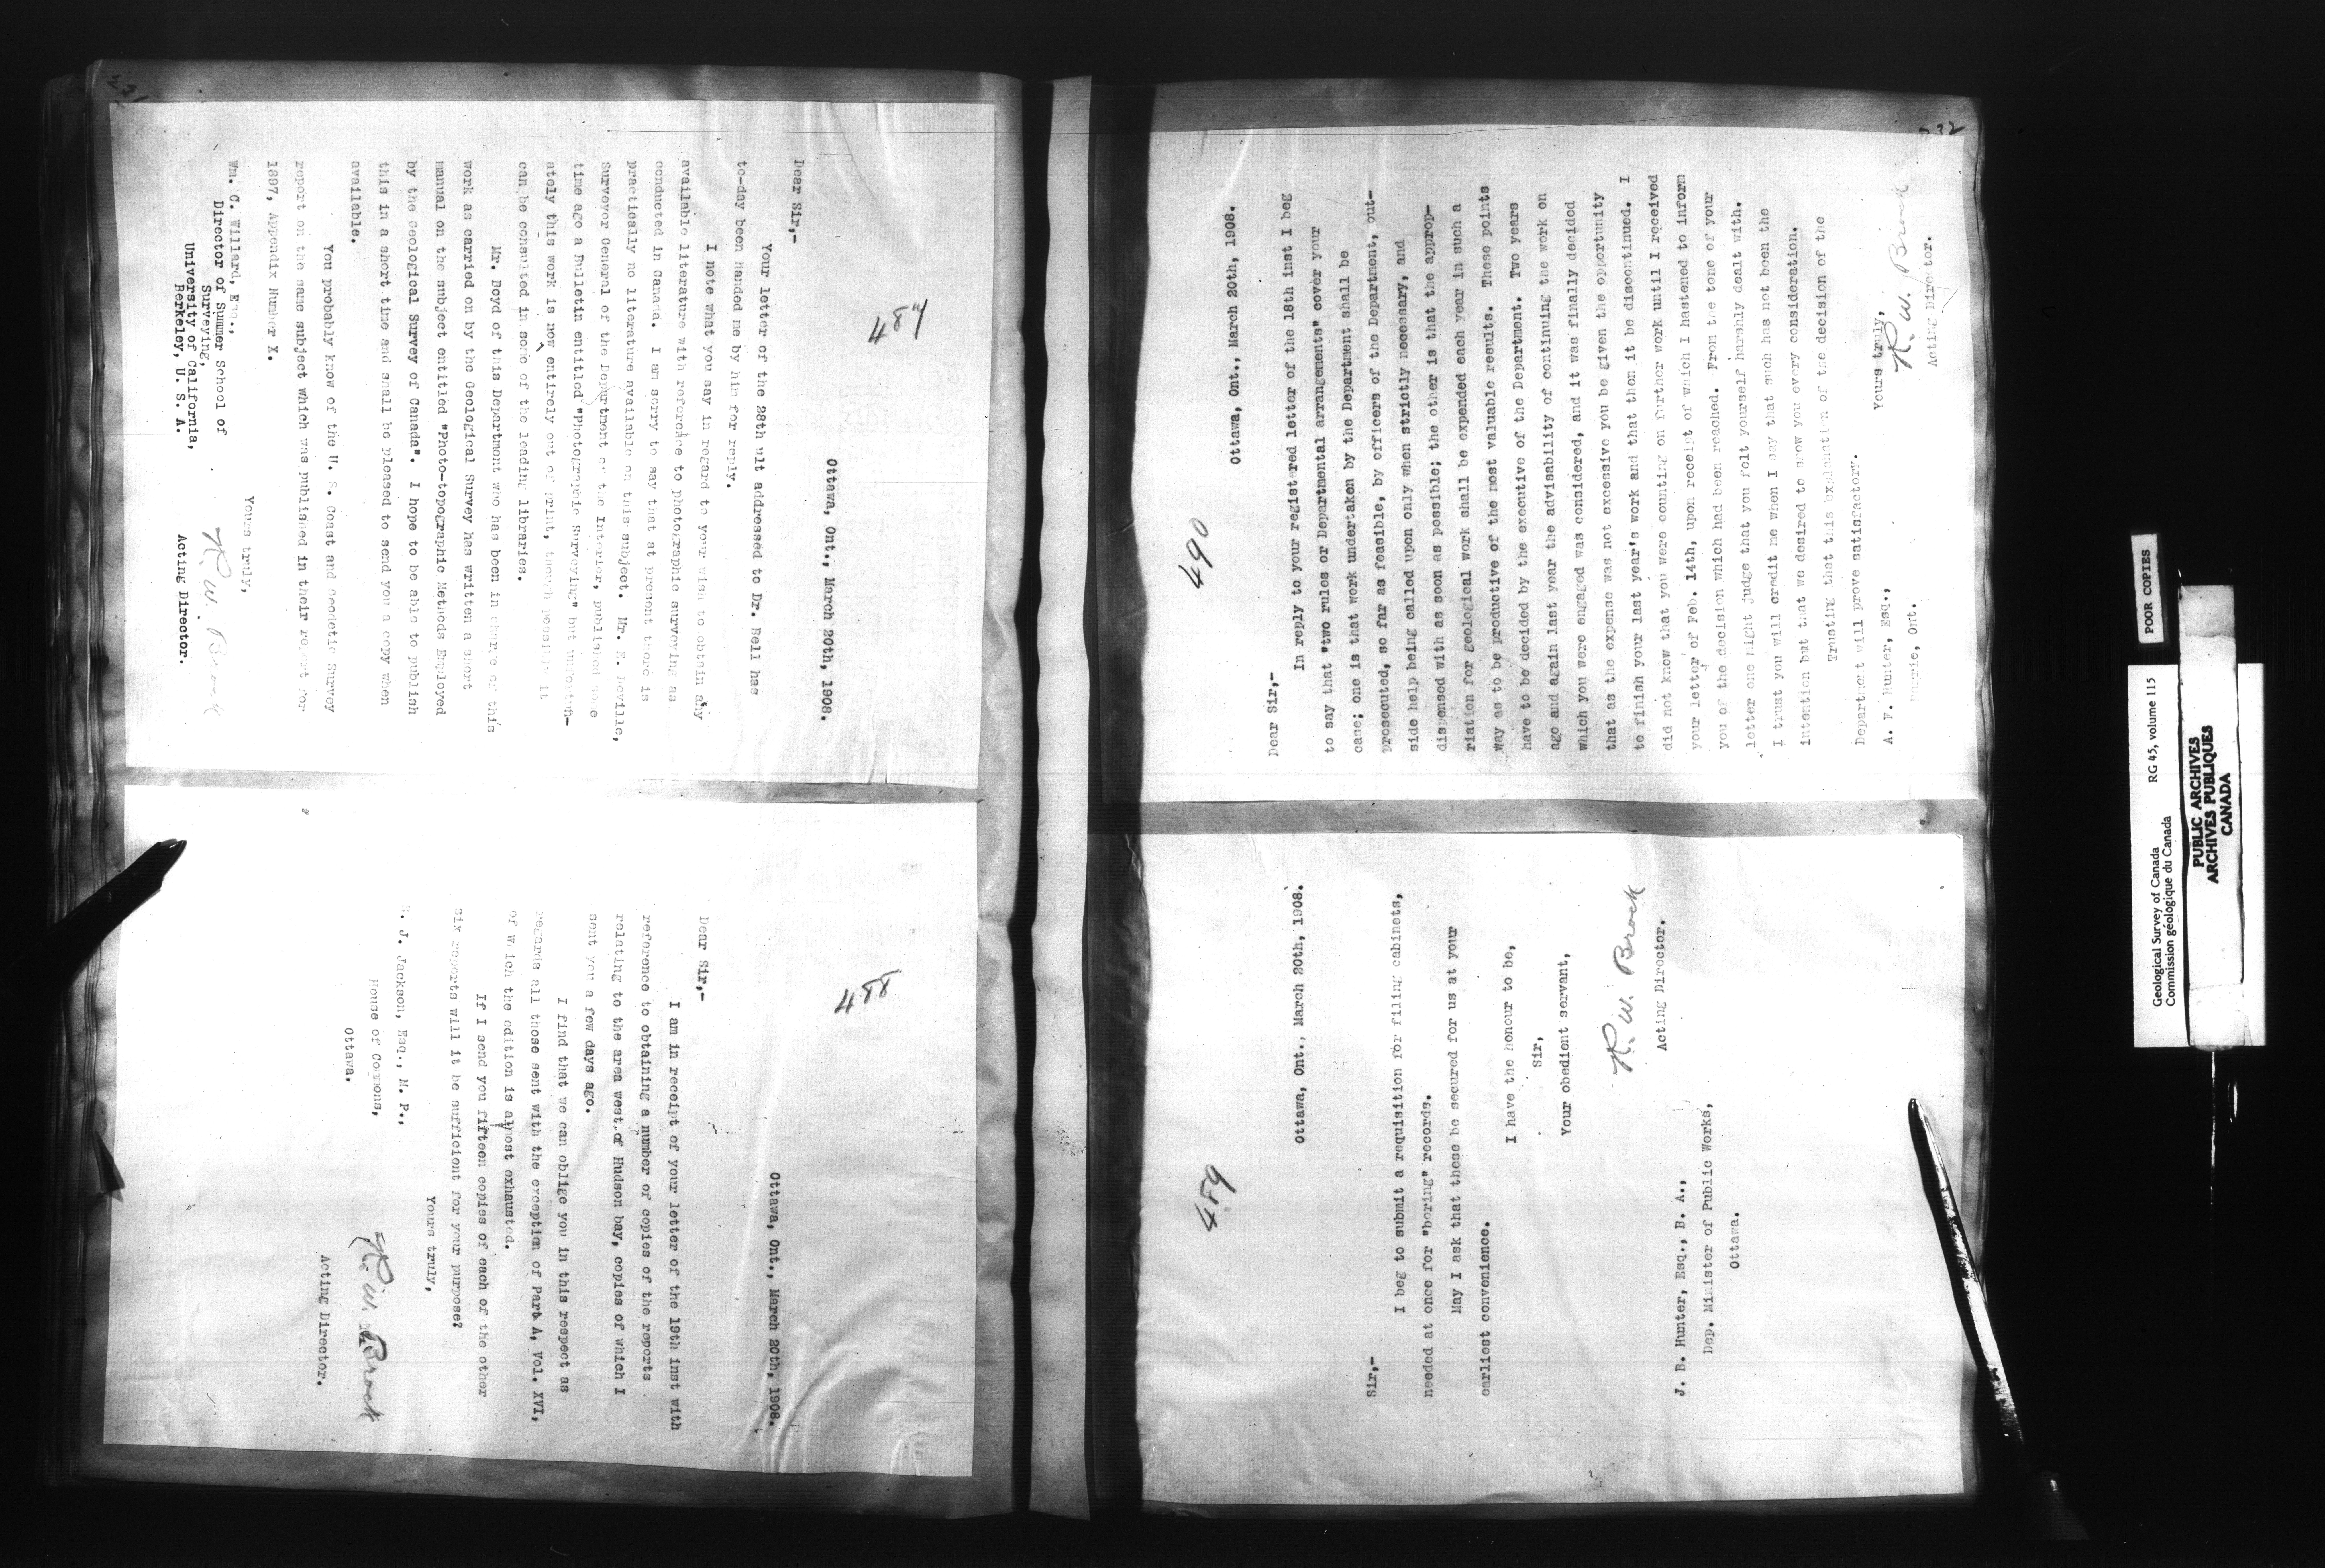 231
487
Ottawa, Ont., March 20th, 1908.
Dear Sir,-
Your letter of the 28th ult addressed to Dr. Bell has
to-day been handed me by him for reply.
I note what you say in regard to your wish to obtain any
available literature with reference to photographic surveying as
conducted in Canada. I am sorry to say that at present there is
practically no literature available on this subject. Mr. E. Deville,
Surveyor General of the Department of the Interior, published some
time ago a Bulletin entitled "Photographic Surveying" but unfortun-
ately this work is now entirely out of print, though possibly it
can be consulted in some of the leading libraries.
Mr. Boyd of this Department who has been in charge of this
work as carried on by the Geological Survey has written a short
manual on the subject entitled "Photo-topographic Methods Employed
by the Geological Survey of Canada". I hope to be able to publish
this in a short time and shall be pleased to send you a copy when
available.
You probably know of the U. S. Coast and Geodetic Survey
report on the same subject which was published in their report for
1897, Appendix Number X.
Yours truly,
R. W. Brock
Acting Director.
Wm. C. Willard, Esq.,
Director of Summer School of
Surveying,
University of California,
Berkeley, U. S. A.
488
Ottawa, Ont., March 20th, 1908.
Dear Sir,-
I am in receipt of your letter of the 19th inst with
reference to obtaining a number of copies of the reports
relating to the area west of Hudson bay, copies of which I
sent you a few days ago.
I find that we can oblige you in this respect as
regards all those sent with the exception of Part A, Vol. XVI,
of which the edition is almost exhausted.
If I send you fifteen copies of each of the other
six reports will it be sufficient for your purpose?
Yours truly,
R. W. Brock
Acting Director.
S. J. Jackson, Esq., M. P.,
House of Commons,
Ottawa.
489
Ottawa, Ont., March 20th, 1908.
Sir,-
I beg to submit a requisition for filing cabinets,
needed at once for "boring" records.
May I ask that these be secured for us at your
earliest convenience.
I have the honour to be,
Sir,
Your obedient servant,
R. W. Brock
Acting Director.
J. B. Hunter, Esq., B. A.,
Dep. Minister of Public Works,
Ottawa.
232
490
Ottawa, Ont., March 20th, 1908.
Dear Sir,-
In reply to your registered letter of the 18th inst I beg
to say that "two rules or Departmental arrangements" cover your
case; one is that work undertaken by the Department shall be
prosecuted, so far as feasible, by officers of the Department, out-
side help being called upon only when strictly necessary, and
dispensed with as soon as possible; the other is that the approp-
riation for geological work shall be expended each year in such a
way as to be productive of the most valuable results. These points
have to be decided by the executive of the Department. Two years
ago and again last year the advisability of continuing the work on
which you were engaged was considered, and it was finally decided
that as the expense was not excessive you be given the opportunity
to finish your last year's work and that then it be discontinued. I
did not know that you were counting on further work until I received
your letter of Feb. 14th, upon receipt of which I hastened to inform
you of the decision which had been reached. From the tone of your
letter one might judge that you felt yourself harshly dealt with.
I trust you will credit me when I say that such has not been the
intention but that we desired to show you every consideration.
Trusting that this explanation of the decision of the
Department will prove satisfactory.
Yours truly,
R. W. Brock
Acting Director.
A. F. Hunter, Esq.,
Barrie, Ont.
POOR COPIES
Geological Survey of Canada
Commission géologique du Canada
RG 45, volume 115
PUBLIC ARCHIVES
ARCHIVES PUBLIQUES
CANADA